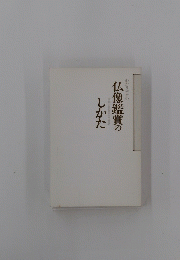 仏像鑑賞の
しかた